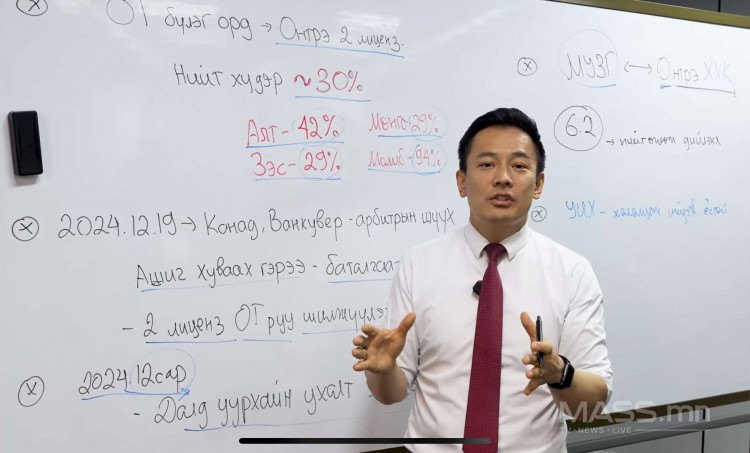 ОТ бүлэг орд → Онтрэ 2 лиценз.
Нийт хүдэр ~30%
Алт - 42% Мөнгө - 29%
Зэс - 29% Молиб - 94%
2024.12.19 → Канад, Ванкувер - арбитрын шүүх
Ашиг хуваах гэрээ - баталгаа
- 2 лиценз ОТ руу шилжүүлэ
2024.12 сар
- Далд уурхайн ухалт
МУЗГ ↔ Онтрэ ХХК
6.2
УИХ - хэлэлцэн ёстой
MASS.mn
NEWS • LIVE